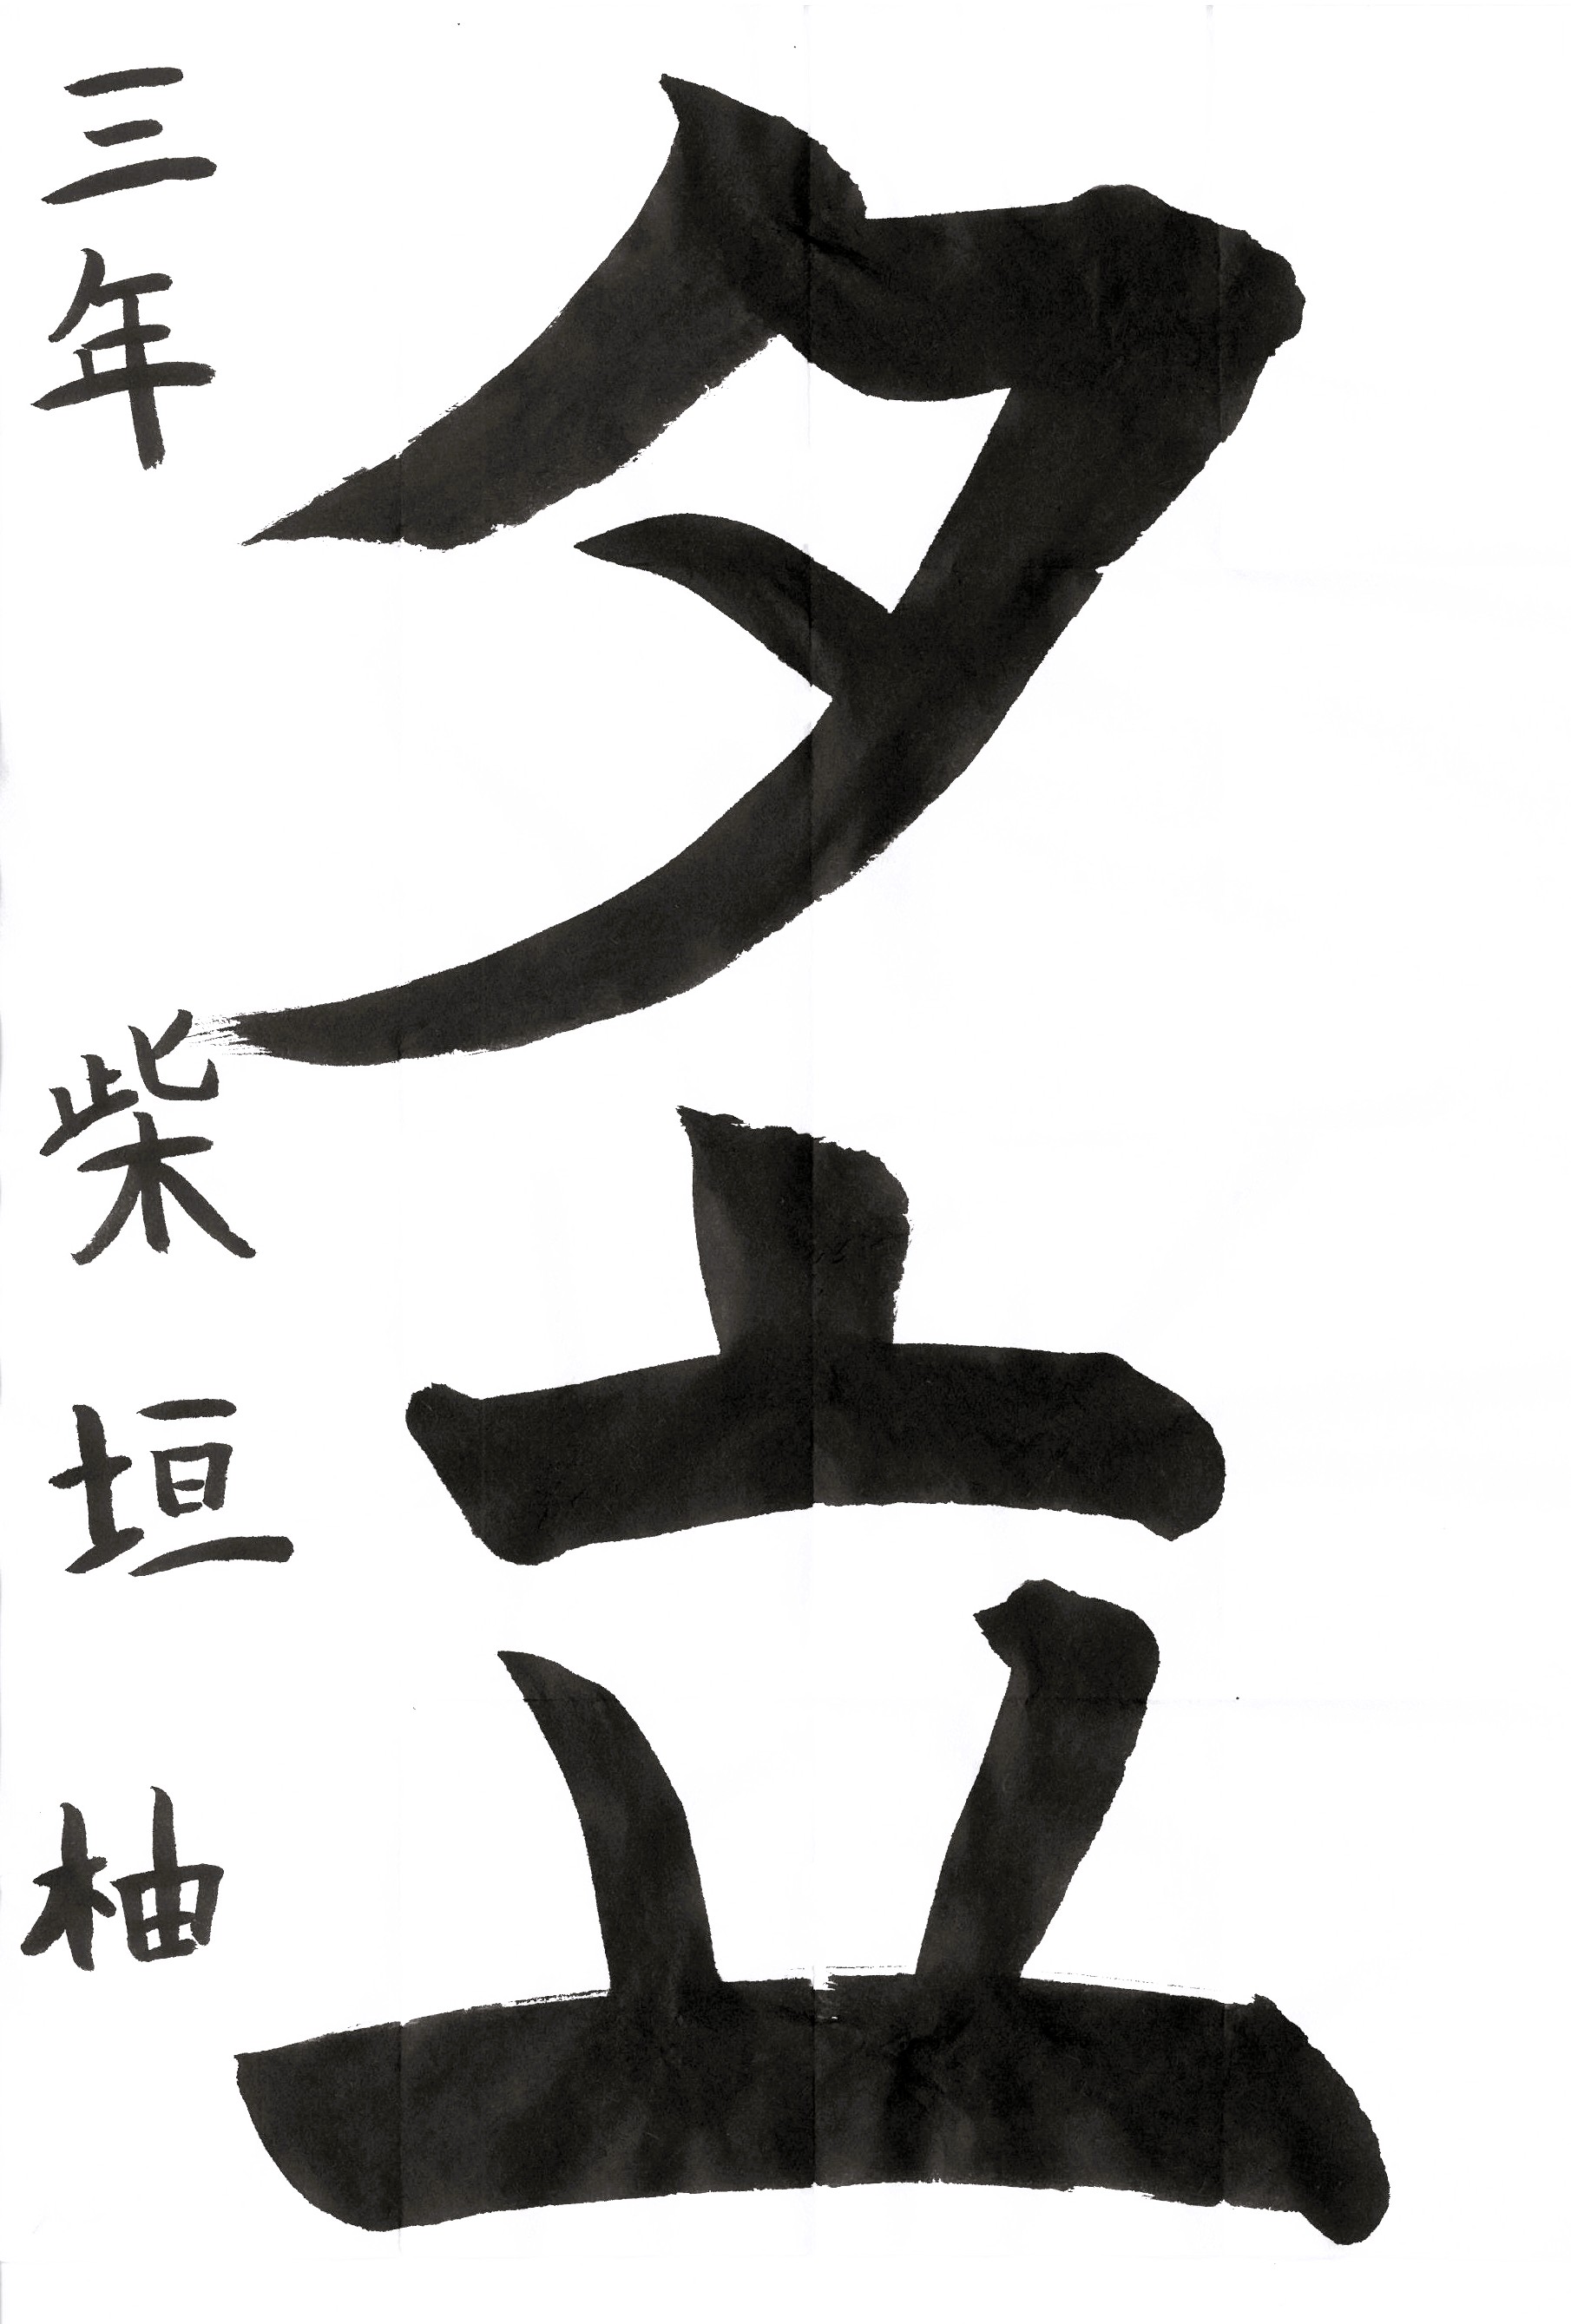 夕立
三年 柴垣柚